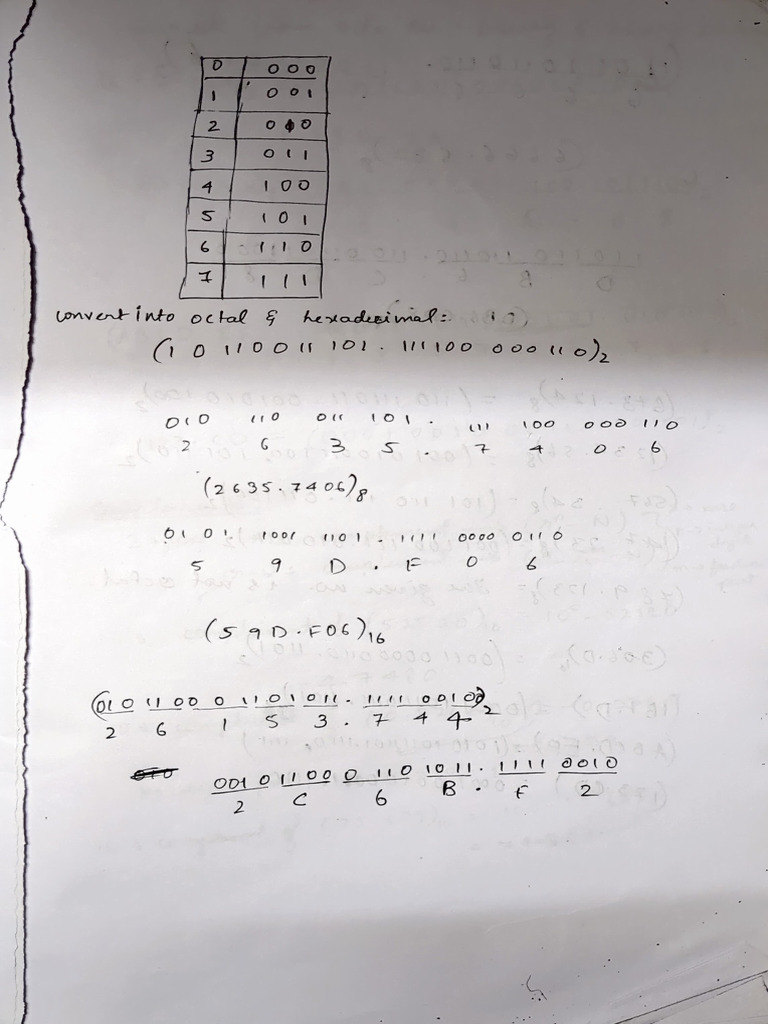 0 000
1 001
2 010
3 011
4 100
5 101
6 110
7 111
convert into octal & hexadecimal:
(1 0 110011 101 . 111100 000110)2
010 110 011 101 . 111 100 000 110
2 6 3 5 . 7 4 0 6
(2635.7406)8
0101 1001 1101 . 1111 0000 0110
5 9 D . F 0 6
(59D.F06)16
(010 110 0 0 1101 011 . 1111 00100)2
2 6 1 5 3 . 7 4 4
0010 1100 0 110 1011 . 1111 0010
2 C 6 B . F 2